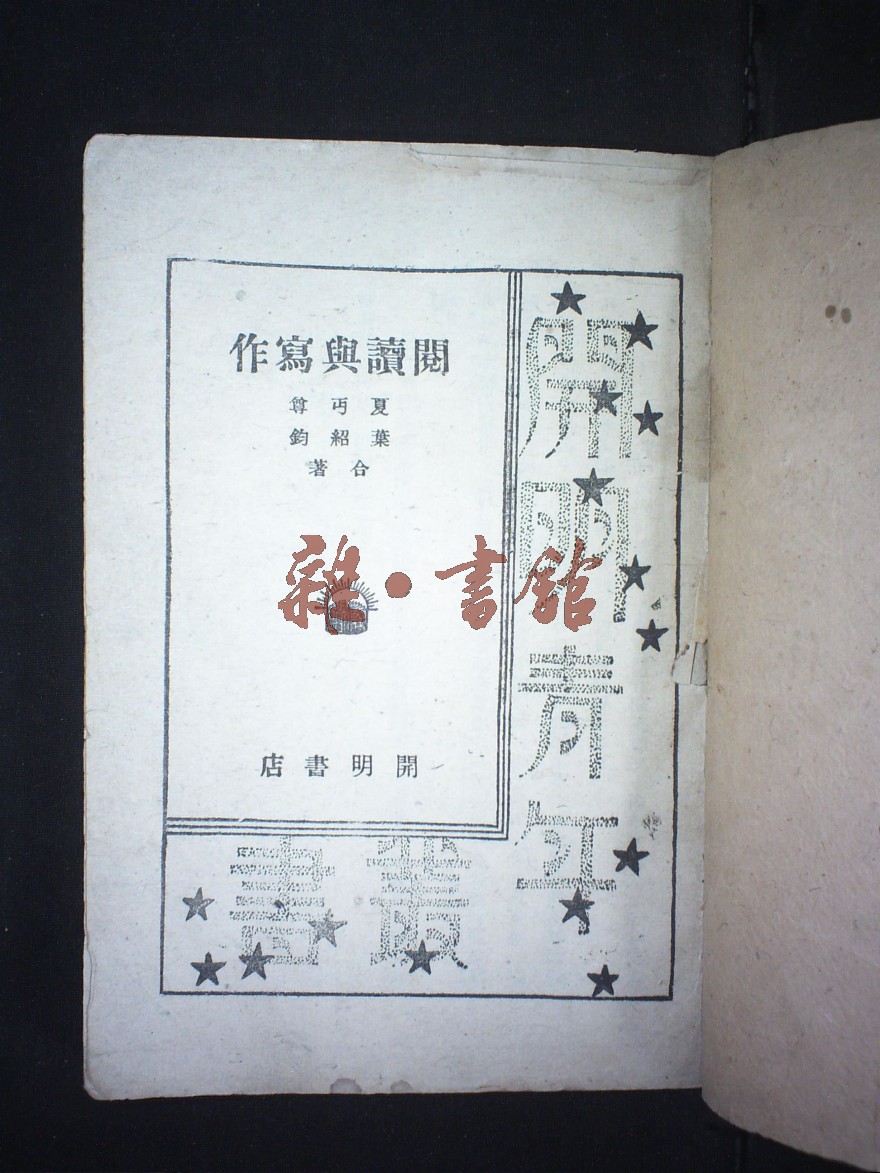 閱讀與寫作
夏丏尊
葉紹鈞
合著
開明書店
開明青年
叢書
雜·書館